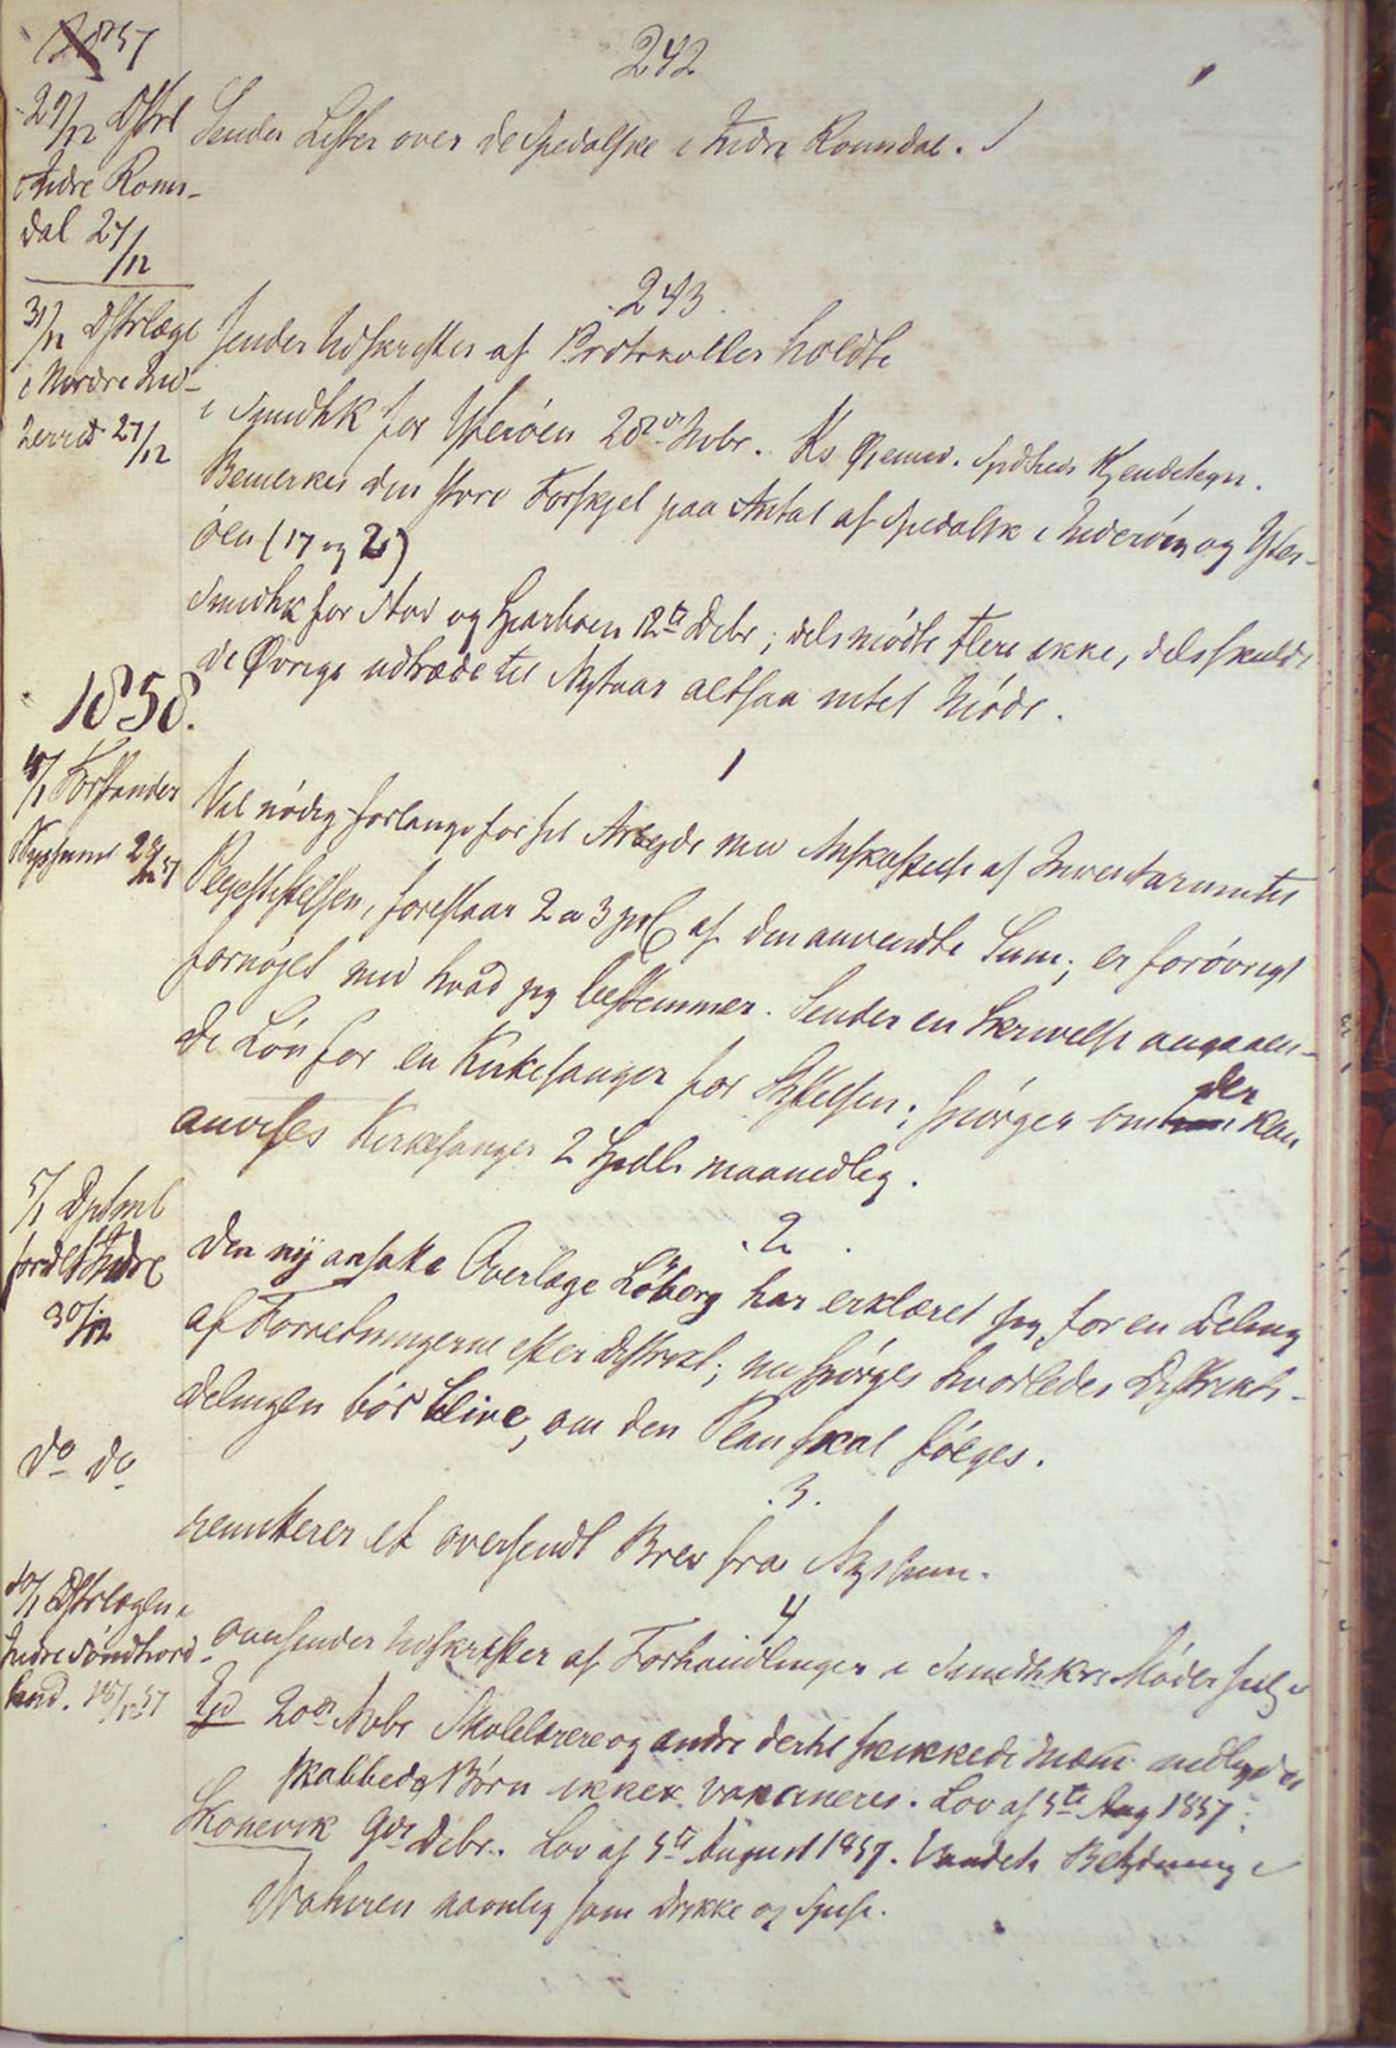 1857
242
29/12 Distrl
Indre Roms-
dal 27/12
Sender Lister over de spedalske i Indre Romsdal.
243.
31/12 Distrlæge
i Nordre Ind-
herred 27/12
sender Udskrifter af Protokoller holdte
i Sundhk for Ytterøen 28de Novbr. Ks Gjenned. Spdheds Kjendetegn.
Bemerker den store Forskjel paa Antal af spedalske i Inderøen og Ytter-
øen (17 og 2)
Sundhk for Stod og Sparboen 12te Debr; dels mødte flere ikke, dels skulde
de Øvrige udtræde til Nytaar altsaa intet Møde.
1858.
1
4/1 Forstander
Nyssum 29/12 57
Vil nødig forlange for sit Arbeide med Anskaffelse af Inventariumtil
Pleiestiftelsen, foreslaar 2 a 3 prC af den anvendte Sum; er forøvrigt
fornøjet med hvad jeg bestemmer. Sender en Skrivelse angaaen-
de Løn for en Kirkesanger for Stiftelsen; spørger om der kan
anvises Kirkesanger 2 Spdlr maanedlig.
2.
5/1 Dptmt
for det Indre
30/12
Den nÿ ansatte Overlæge Löberg har erklæret sig for en Deling
af Forretningerne efter Distrikt; nu spørges hvorledes Distrikts-
delingen bør blive, om den Plan skal følges.
3.
do do
remitterer et oversendt Brev fra Nyshum.
4
10/1 Distrlægen i
Indre Søndhord-
land. 18/12 57
oversender Udskrifter af Forhandlinger i Sundhkrs Møder
20de Novbr Skolelærere og andre dertil skikkede Mænd
skabbede Børn ikke vaxineres. Lov af 5te Aug 1857.
Skonevik 9de Debr. Lov af 5te August 1857. Vandets Betydning i
Naturen navnlig som Drikke og Spise.